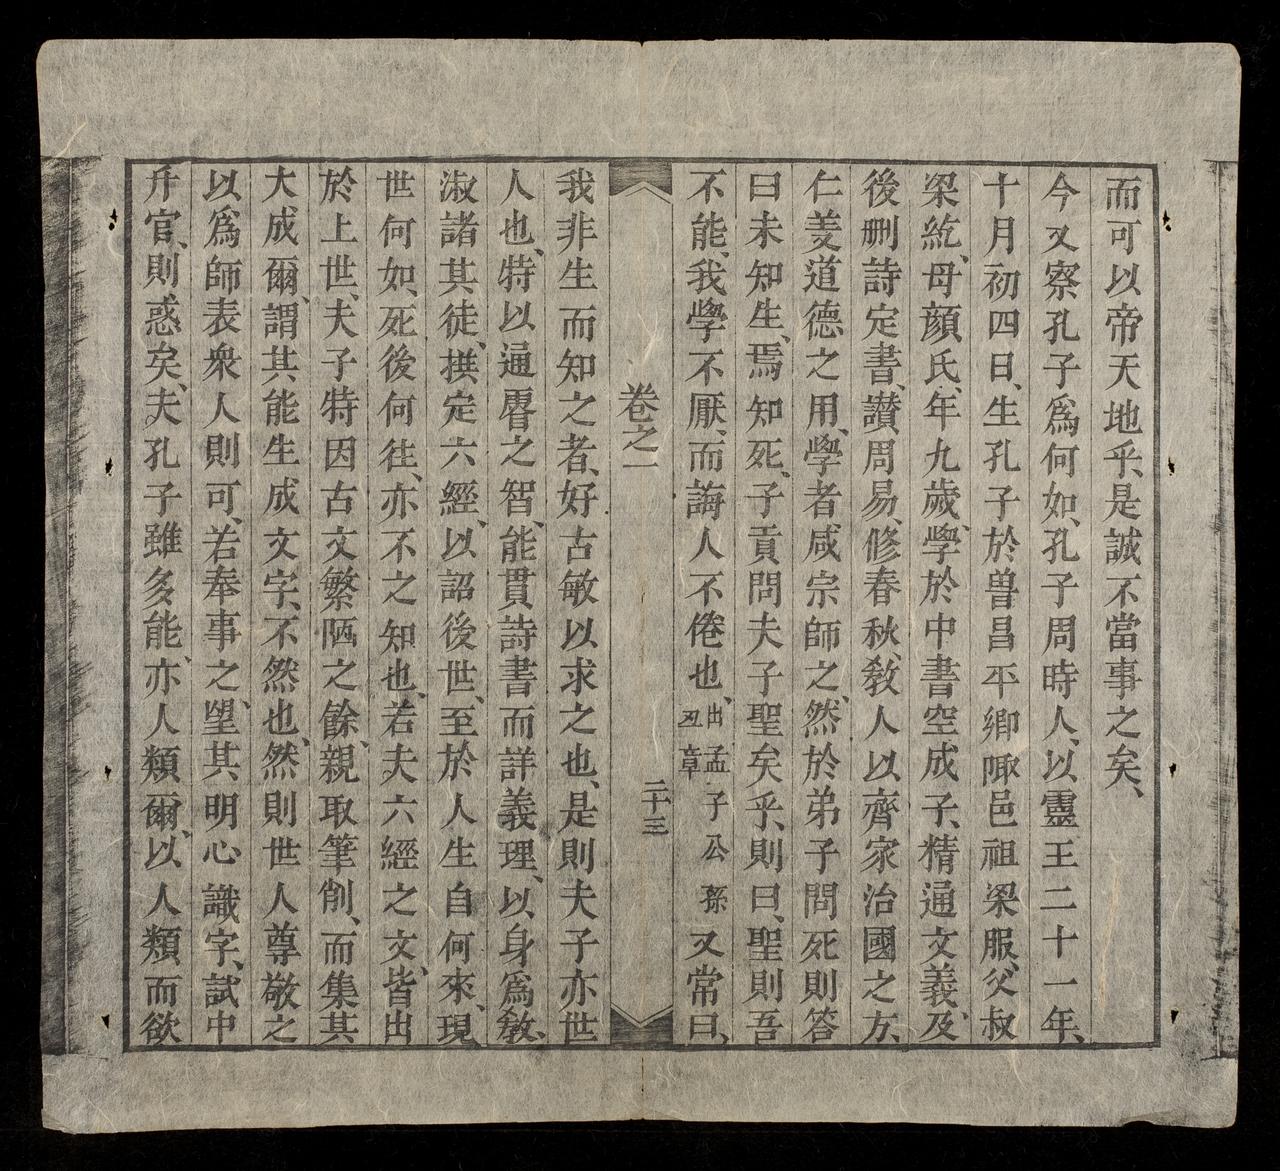 而可以帝天地乎、是誠不當事之矣、
今又察孔子爲何如、孔子周時人、以靈王二十一年、
十月初四日、生孔子於兽昌平鄉陬邑祖梁服、父叔
梁紇、母顏氏、年九歲、學於中書空成子、精通文義、及
後删詩定書、讃周易、修春秋、敎人以齊家治國之方、
仁義道德之用、學者咸宗師之、然於弟子問死則答
曰未知生、焉知死、子貢問夫子聖矣乎、則曰、聖則吾
不能、我學不厭、而誨人不倦也、出孟子公孫丑章又常曰、
卷之一
二十三
我非生而知之者、好古敏以求之也、是則夫子亦世
人也、特以通睿之智、能貫詩書而詳義理、以身爲敎、
淑諸其徒、撰定六經、以詔後世、至於人生自何來、現
世何如、死後何往、亦不之知也、若夫六經之文、皆出
於上世、夫子特因古文繁陋之餘、親取筆削、而集其
大成爾、謂其能生成文字、不然也、然則世人尊敬之
以爲師表衆人則可、若奉事之、望其明心識字、試中
升官、則惑矣、夫孔子雖多能、亦人類爾、以人類而欲